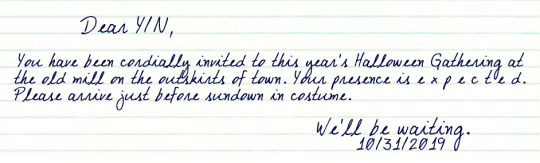 Dear Y/N,
You have been cordially invited to this year's Halloween Gathering at
the old mill on the outskirts of town. Your presence is e x p e c t e d.
Please arrive just before sundown in costume.
We'll be waiting.
10/31/2019